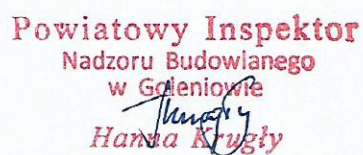 Powiatowy Inspektor
Nadzoru Budowlanego
w Goleniowie
Hanna Krugły